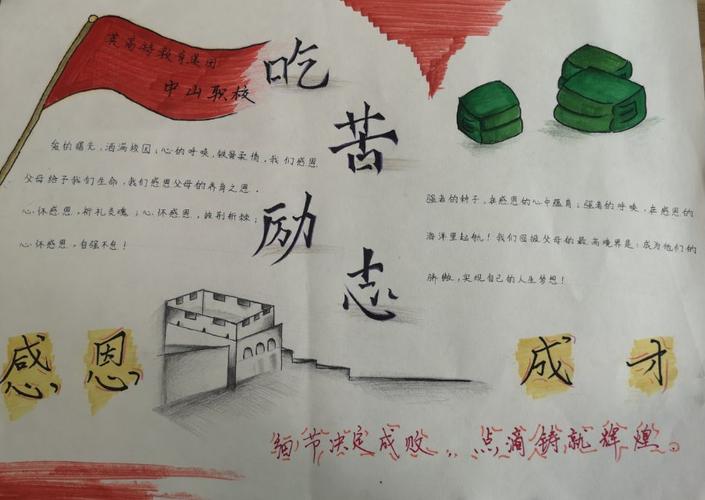 英高特教育集团
中山职校
吃苦励志
爱的曙光,洒满校园;心的呼唤,铁骨柔情,我们感恩
父母给予我们生命,我们感恩父母的养育之恩。
心怀感恩,祈礼灵魂;心怀感恩,披荆斩棘;
心怀感恩,自强不息!
强者的种子,在感恩的心中蕴育;强者的呼唤,在感恩的
海洋里起航!我们回报父母的最高境界是:成为他们的
骄傲,实现自己的人生梦想!
感恩
成才
细节决定成败,,点滴铸就辉煌。